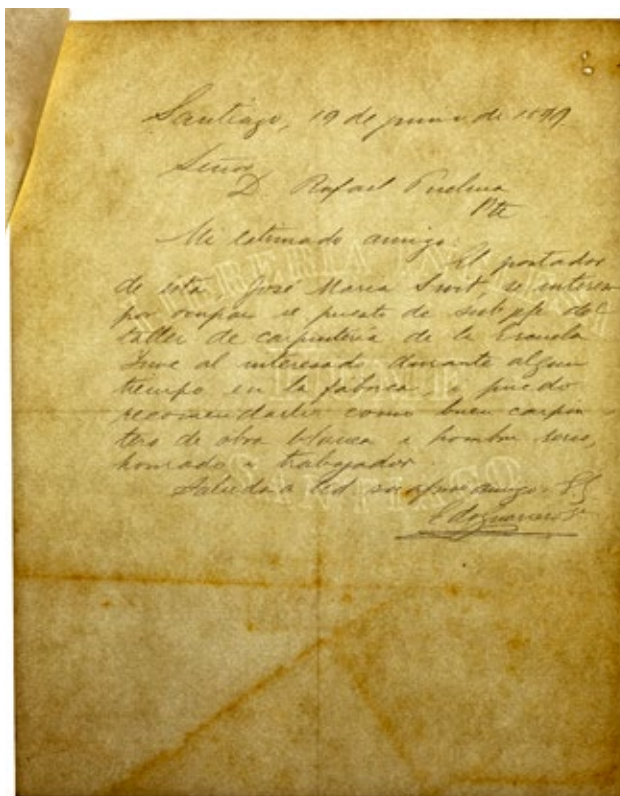 Santiago, 19 de junio de 1899
Señor
D. Rafael Puelma
Pte
Mi estimado amigo:
El portador
de ésta, José Maria Smit, se interesa
por ocupar el puesto de sub-jefe del
taller de carpintería de la Escuela
Tuve al interesado durante algun
tiempo en la fábrica, i puedo
recomendarlo como buen carpin
tero de obra blanca i hombre serio,
honrado i trabajador.
Saluda a Ud. su afmo amigo i S.S.
LIBRERIA
SANTIAGO